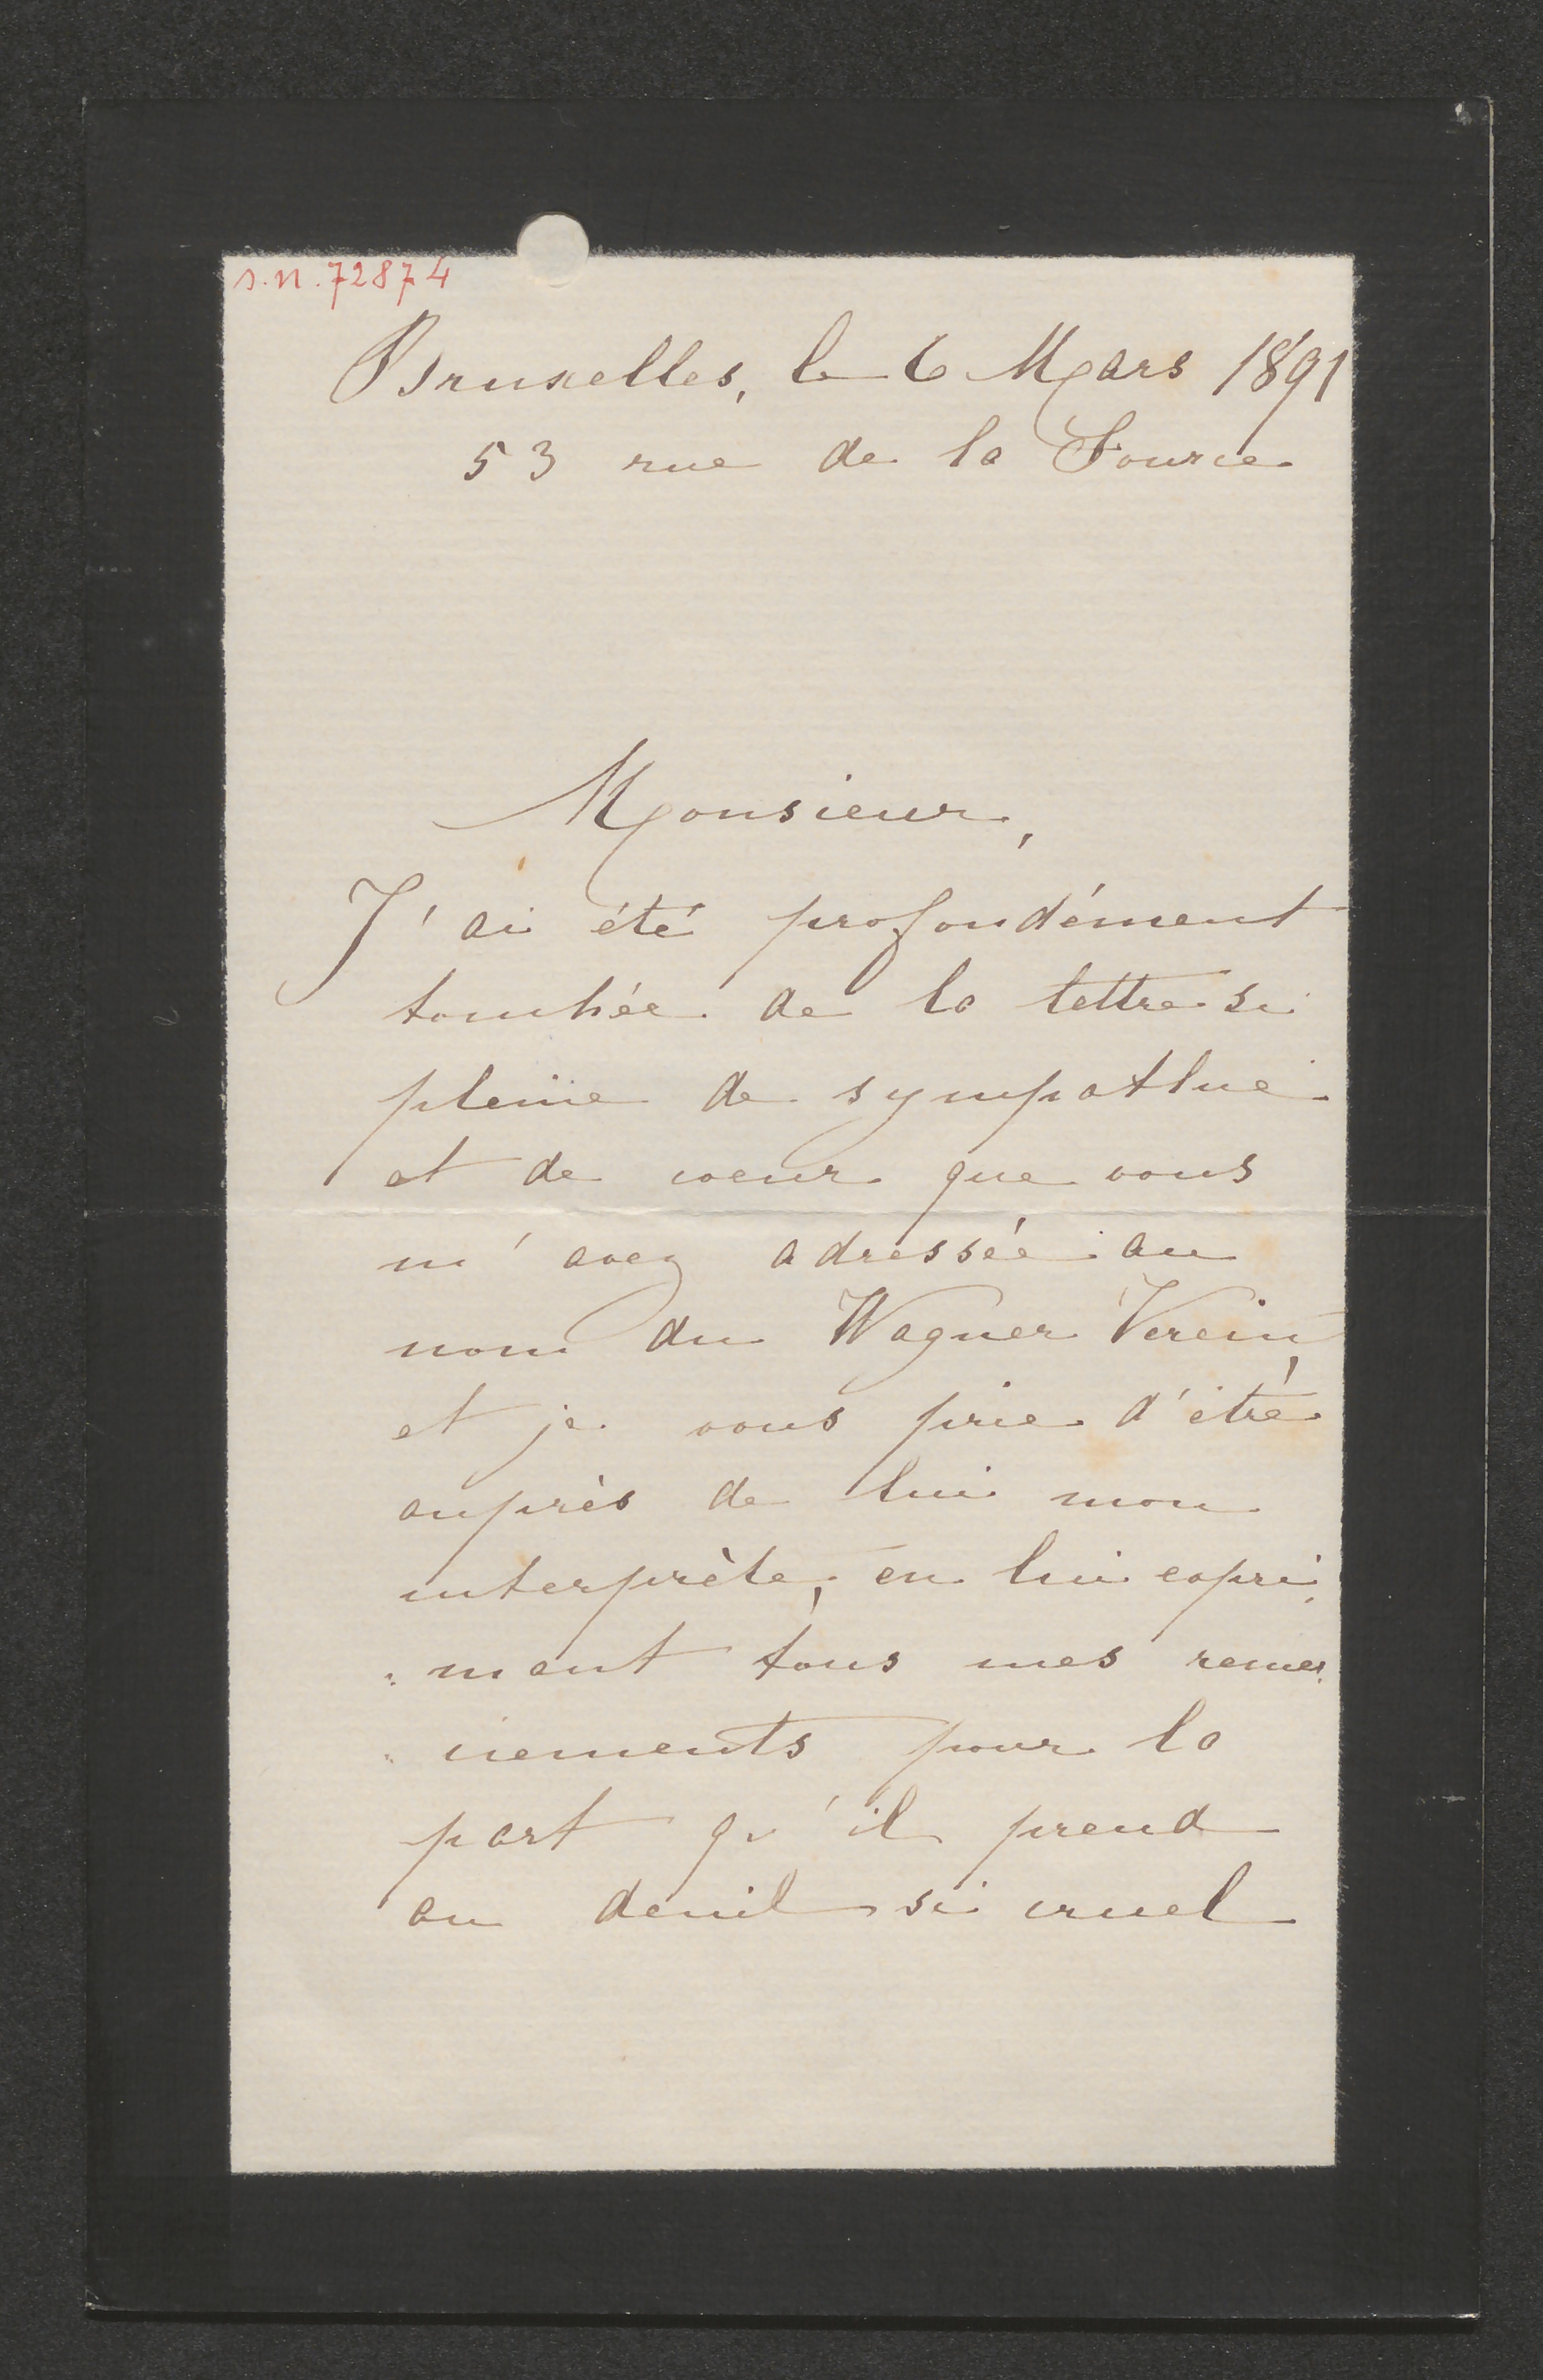 s.n. 72874
Bruxelles, le 6 Mars 1891
53 rue de la Source
Monsieur,
J'ai été profondément
touchée de la lettre si
pleine de sympathie
et de coeur que vous
m'avez adressée au
nom du Wagner Verein,
et je vous prie d'être
auprès de lui mon
interprète, en lui expri-
:mant tous mes remer-
:ciements pour la
part qu'il prend
au deuil si cruel